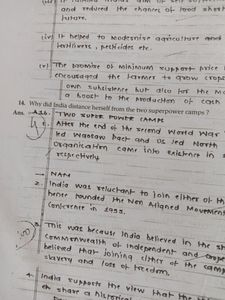 and reduced the chances of food short
future.
(iv) It helped to modernise agriculture and
fertilizers, pesticides etc.
(v) The promise of minimum support price
encouraged the farmer to grow crops
own subsistence but also for the ma
a boost to the production of cash
14. Why did India distance herself from the two superpower camps ?
Ans. A36. TWO SUPER POWER CAMPS
After the end of the second World War
led Warsaw Pact and US led North
Organisation came into existence in
respectively
→ NAM
2. India was reluctant to join either of th
hence founded the Non Aligned Movement
Conference in
3. This was because India believed in the
commonwealth of independent and
believed that joining either of the camp
slavery and loss of freedom.
4. India supports the view that the
share a historical